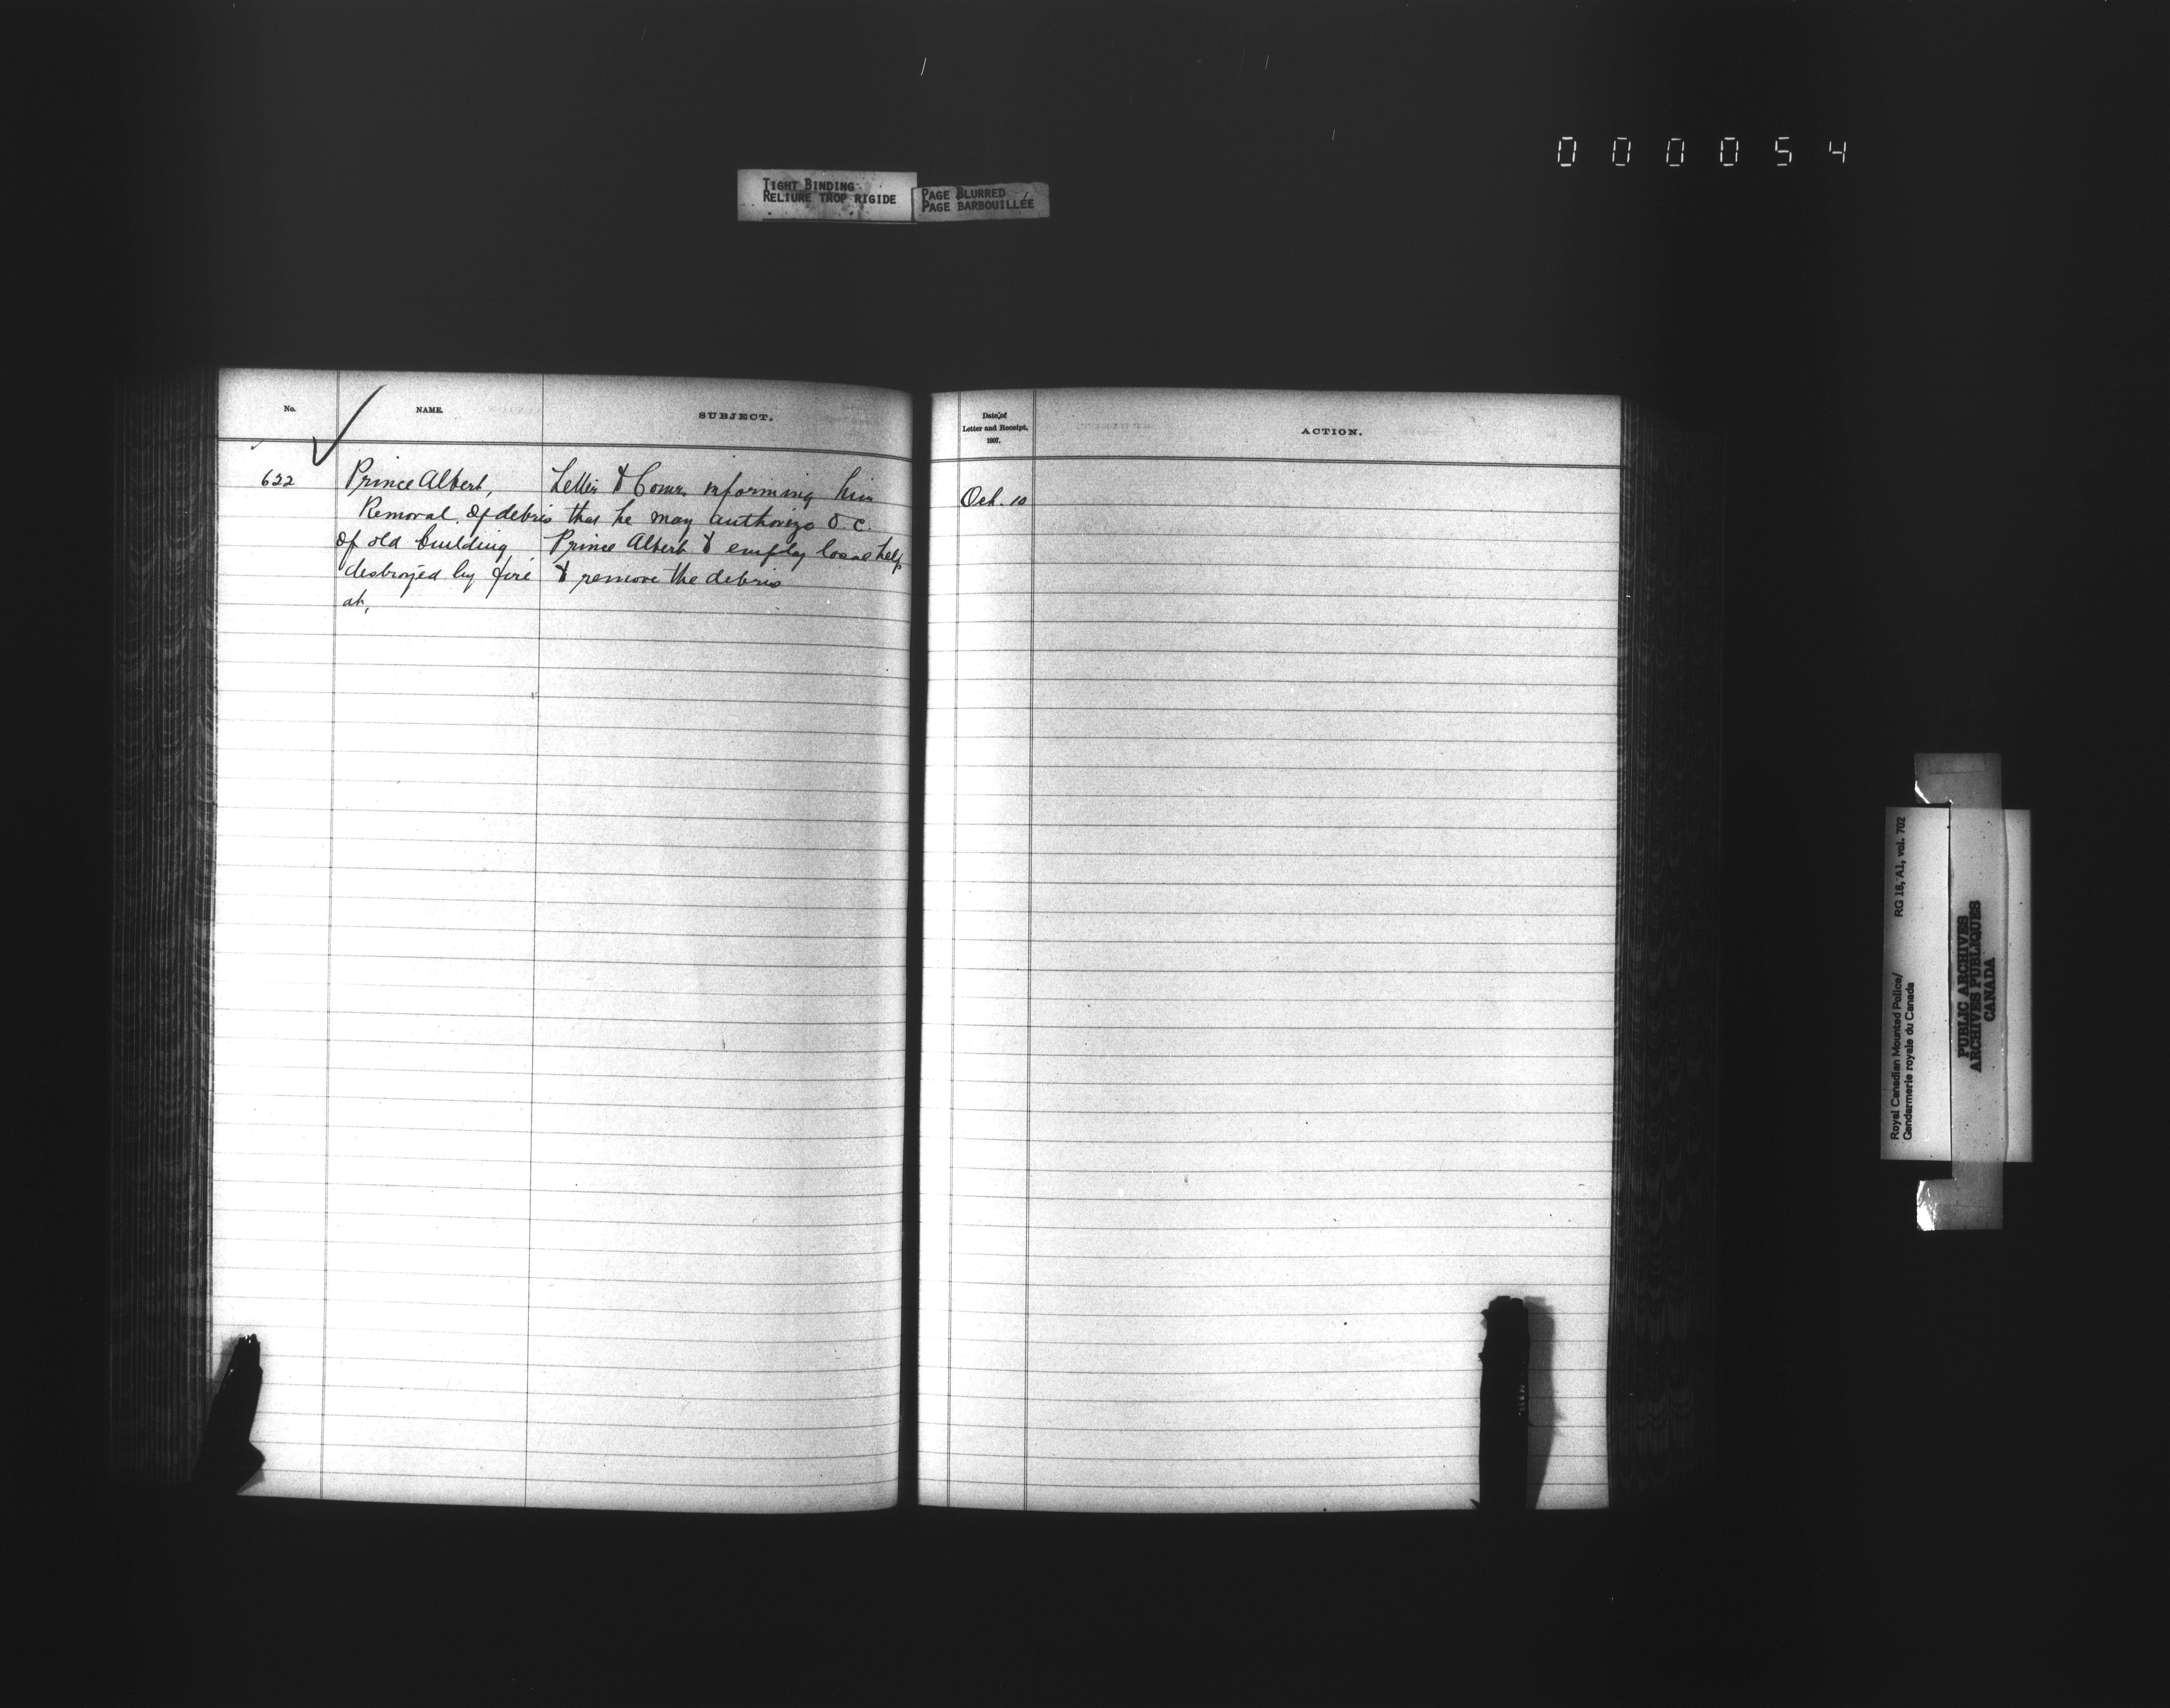 000054
TIGHT BINDING
RELIURE TROP RIGIDE
PAGE BLURRED
PAGE BARBOUILLÉE
No.
NAME.
SUBJECT.
Date of
Letter and Receipt,
1907.
ACTION.
622
Prince Albert,
Removal of debris
of old building
destroyed by fire
at,
Letter to Comr. informing him
that he may authorize O.C.
Prince Albert to employ local help
to remove the debris
Oct. 10
Royal Canadian Mounted Police/
Gendarmerie royale du Canada
RG 18, A1, vol. 702
PUBLIC ARCHIVES
ARCHIVES PUBLIQUES
CANADA